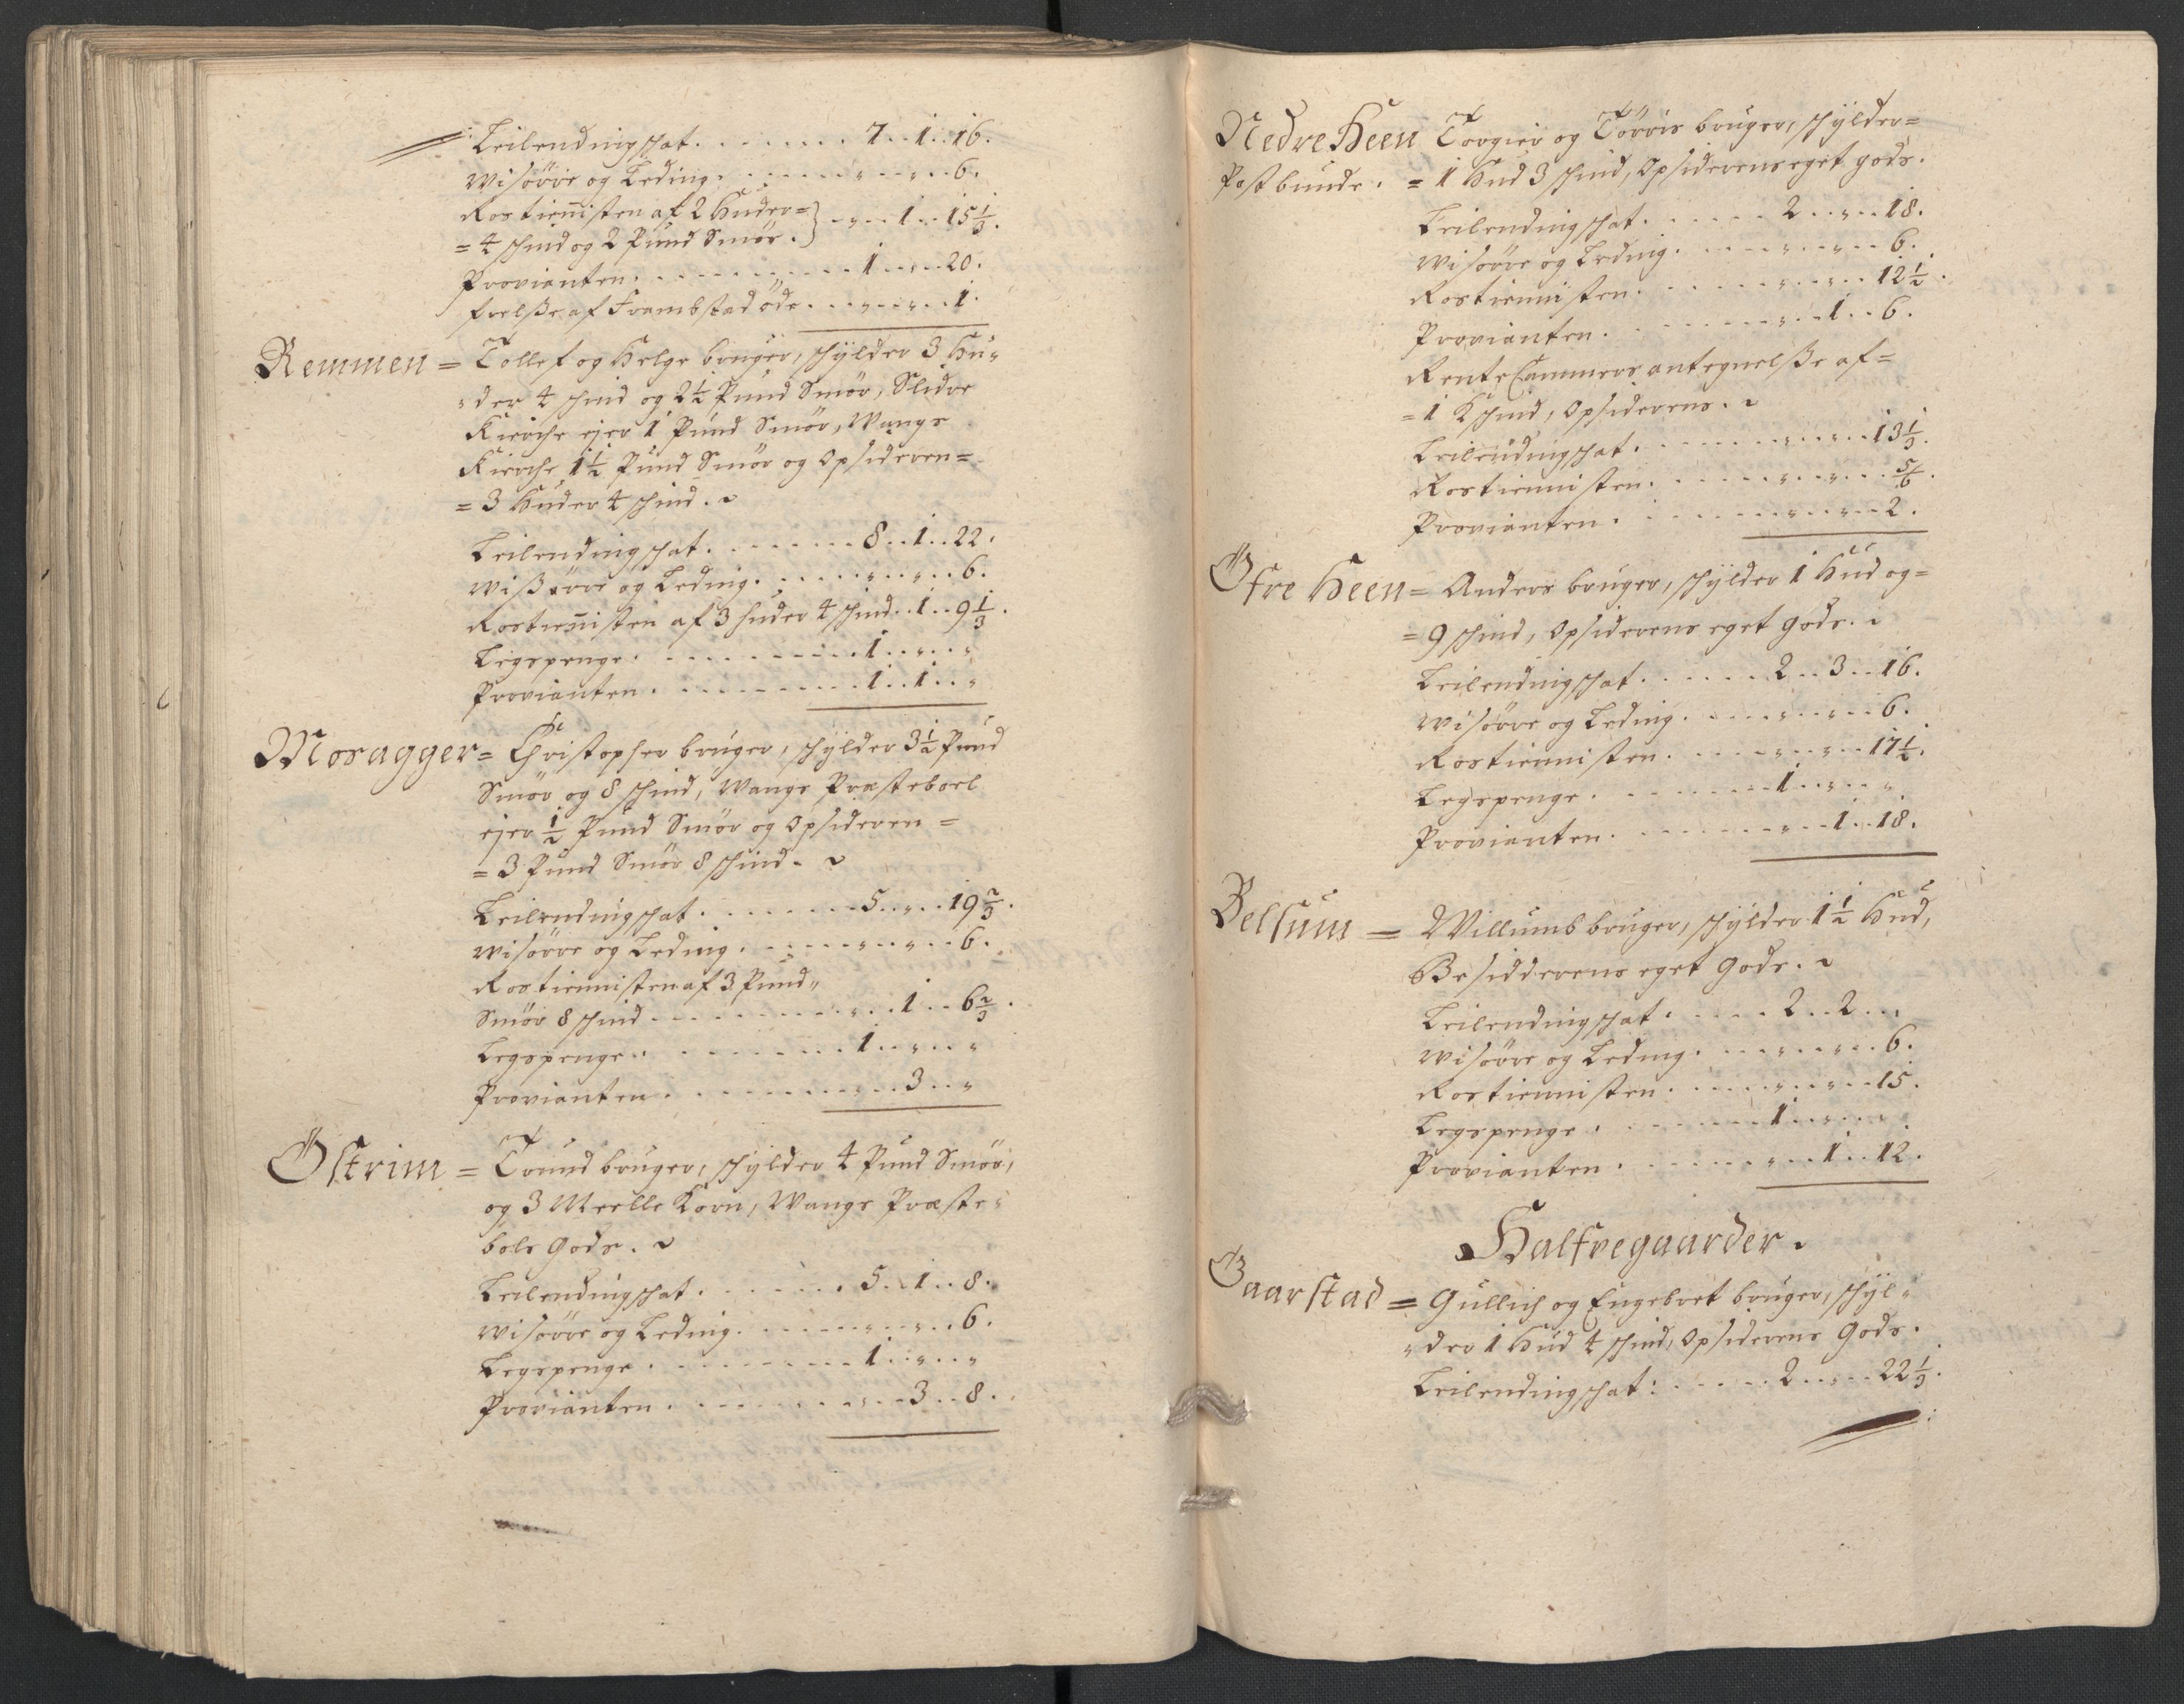 Leilendingschat. . . . . . . . 7 . . 1 . . 16.
Wisörre og Leding. . . . . . . „ . . „ . . 6.
Rostienisten af 2 Huder=
= 4 schind og 2 Pund Smör. } . . „ . . 1 . . 15 1/3.
Provianten. . . . . . . . . . 1 . . „ . . 20.
frelße af Frambstad öde. . . „ . . „ . . 1.
Remmen = Tollef og Helge bruger, schylder 3 Hu„
„der 4 schind og 2 1/2 Pund Smör, Slidre
Kierche ejer 1 Pund Smör, Wangs
Kierche 1 1/2 Pund Smör og Opsideren=
= 3 Huder 4 schind.
Leilendingschat. . . . . . . . 8 . . 1 . . 22.
Wißörre og Leding. . . . . . „ . . „ . . 6.
Rostienisten af 3 huder 4 schind . . 1 . . 9 1/3.
Legspenge. . . . . . . . . . 1 . . „ . . „
Provianten. . . . . . . . . . 1 . . 1 . . „
Moragger = Christopher bruger, schylder 3 1/2 Pund
Smör og 8 schind, Wangs Præsteboel
ejer 1/2 Pund Smör og Opsideren =
= 3 Pund Smör 8 schind.
Leilendingschat. . . . . . . . 5 . . „ . . 19 2/3.
Wisörre og Leding. . . . . . „ . . „ . . 6.
Rostiennisten af 3 Pund„
Smör 8 schind . . . . . . . . „ . . 1 . . 6 2/3.
Legspenge. . . . . . . . . . 1 . . „ . . „
Provianten. . . . . . . . . . „ . . 3 . . „
Östrim = Trund bruger, schylder 4 Pund Smör,
og 3 Meelle Korn, Wangs Præste„
bols Gods.
Leilendingschat. . . . . . . 5 . . 1 . . 8.
Wisörre og Leding. . . . . . „ . . „ . . 6.
Legspenge. . . . . . . . . . 1 . . „ . . „
Provianten. . . . . . . . . . „ . . 3 . . 8.
Nedre Heen Torgier og Törris bruger, schylder=
Postbunde. = 1 Hud 3 schind, Opsiderens eget gods.
Leilendingschat. . . . . . 2 . . „ . . 18.
Wisörre og Leding. . . . . „ . . „ . . 6.
Rostiennisten. . . . . . . „ . . „ . . 12 1/2.
Provianten. . . . . . . . „ . . 1 . . 6.
Rente Cammers antegnelße af=
= 1 Kschind, Opsiderens.
Leilendingschat. . . . . . „ . . „ . . 13 1/3.
Rostiennisten. . . . . . . „ . . „ . . 5/6.
Provianten. . . . . . . . „ . . „ . . 2.
Öfre Heen = Anders bruger, schylder 1 Hud og=
= 9 schind, Opsiderens eget Gods.
Leilendingschat. . . . . . 2 . . 3 . . 16.
Wisörre og Leding. . . . . „ . . „ . . 6.
Rostiennisten. . . . . . . „ . . „ . . 17 1/2.
Legspenge. . . . . . . . 1 . . „ . . „
Provianten. . . . . . . . „ . . 1 . . 18.
Belsum = Willumb bruger, schylder 1 1/2 Hud,
Besidderens eget Gods.
Leilendingschat. . . . . 2 . . 2 . . „
Wisörre og Leding. . . . „ . . „ . . 6.
Rostiennisten. . . . . . „ . . „ . . 15.
Legspenge. . . . . . . . 1 . . „ . . „
Provianten. . . . . . . . „ . . 1 . . 12.
Halfvegaarder.
Gaarstad = Gullich og Engebret bruger, schyl„
„der 1 Hud 4 schind, Opsiderens Gods.
Leilendingschat: . . . . 2 . . „ . . 22 1/3.